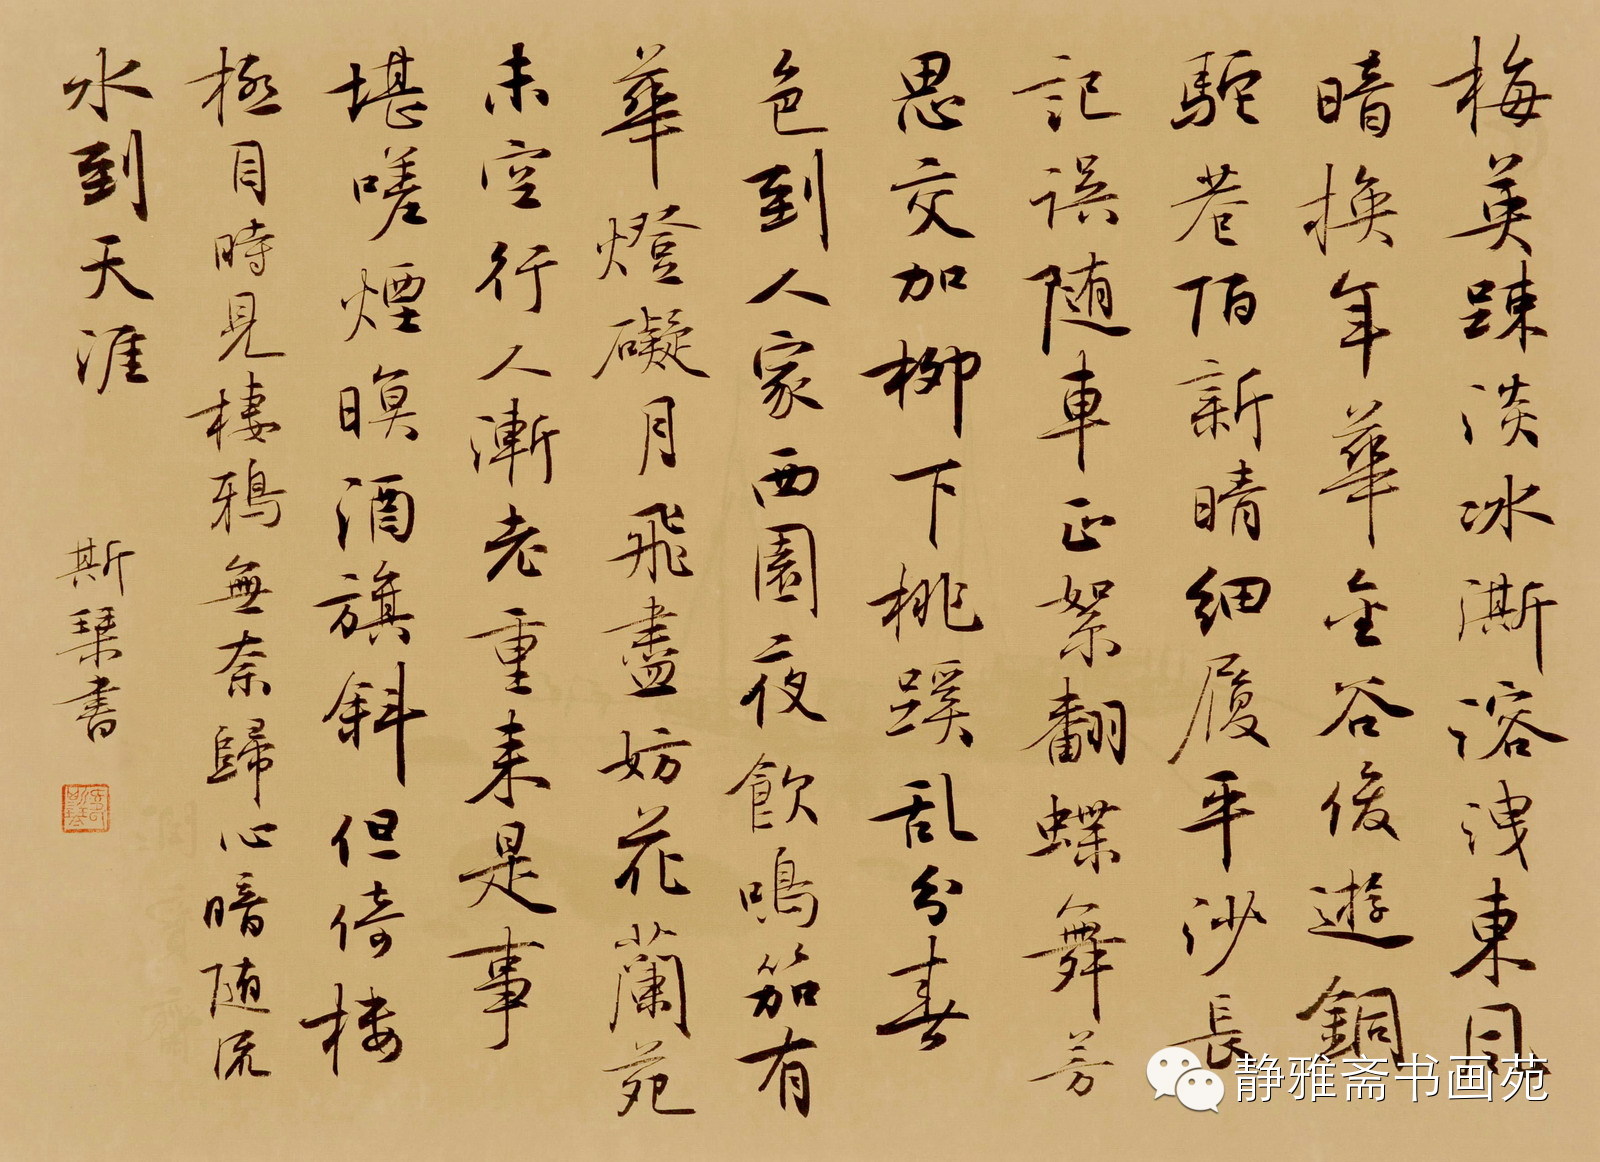 梅英踈淡冰澌溶洩東風
暗換年華金谷俊遊銅
駝巷陌新晴細履平沙長
記误随車正絮翻蝶舞芳
思交加柳下桃蹊乱分春
色到人家西園夜飲鳴笳有
華燈礙月飛盡妨花蘭苑
未空行人漸老重来是事
堪嗟煙暝酒旗斜但倚楼
極目時見棲鴉無奈歸心暗随流
水到天涯
斯琹書
静雅斋书画苑